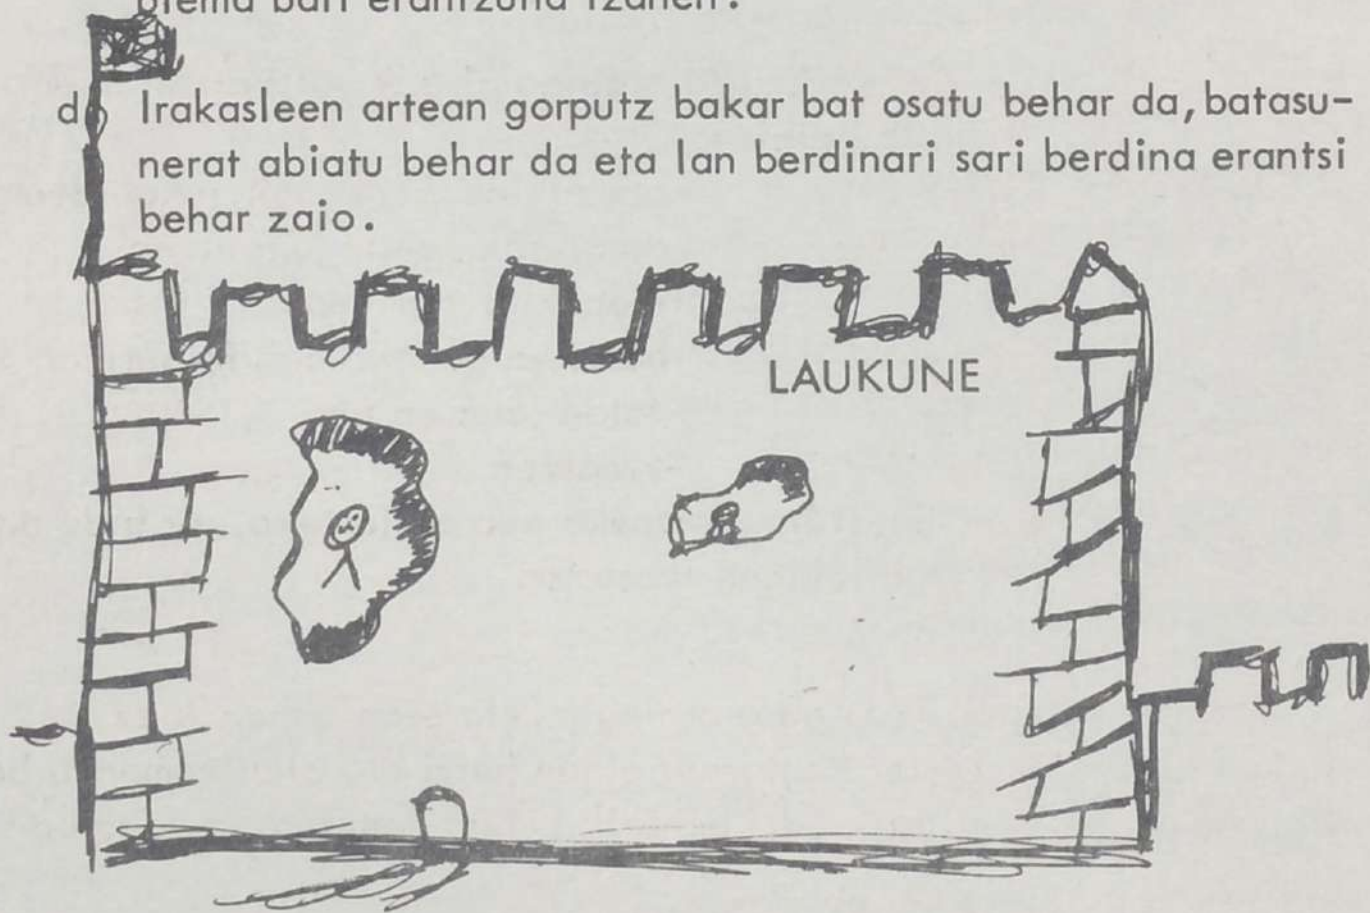 blema bati erantzuna izanen.
d) Irakasleen artean gorputz bakar bat osatu behar da, batasu-
nerat abiatu behar da eta lan berdinari sari berdina erantsi
behar zaio.
LAUKUNE